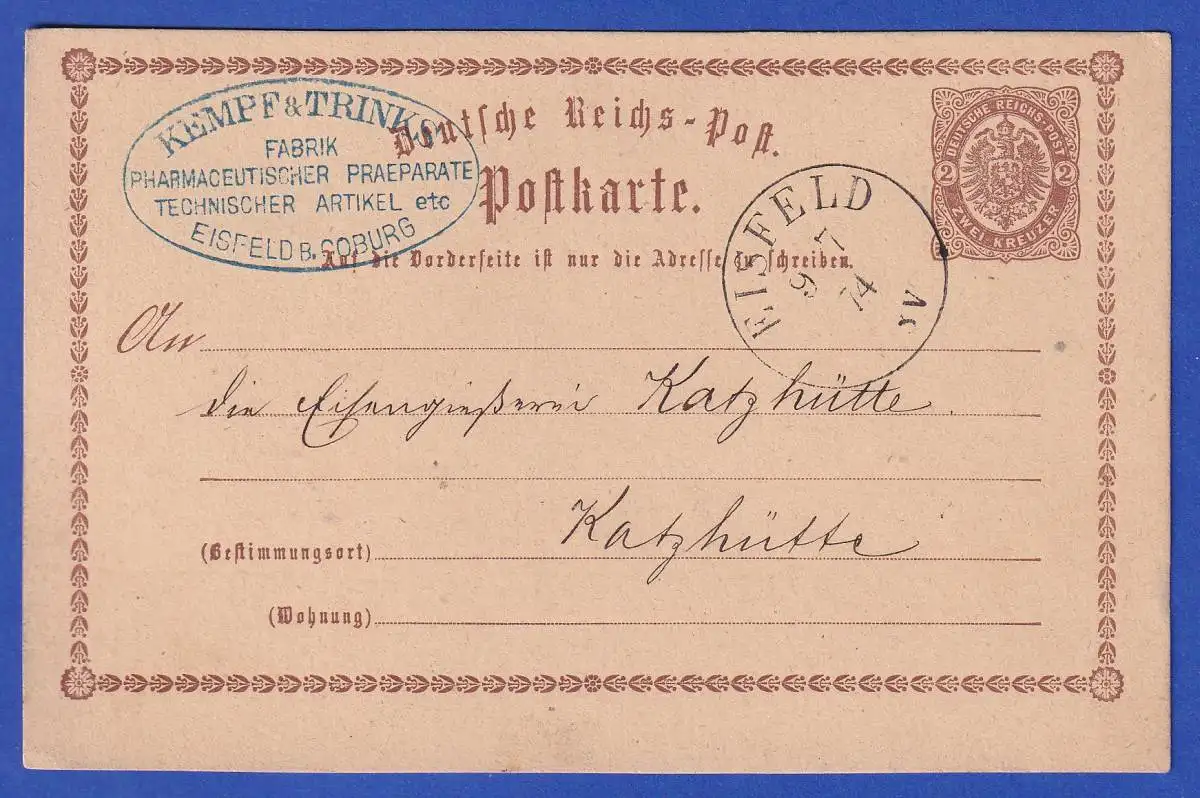 KEMPF & TRINKS
FABRIK
PHARMACEUTISCHER PRAEPARATE
TECHNISCHER ARTIKEL etc
EISFELD B. COBURG
Deutsche Reichs-Post.
Postkarte.
Auf die Vorderseite ist nur die Adresse zu schreiben.
DEUTSCHE REICHS-POST
2 2
ZWEI KREUZER
EISFELD
9 7
74
An
die Eisengießerei Katzhütte.
Katzhütte
(Bestimmungsort)
(Wohnung)